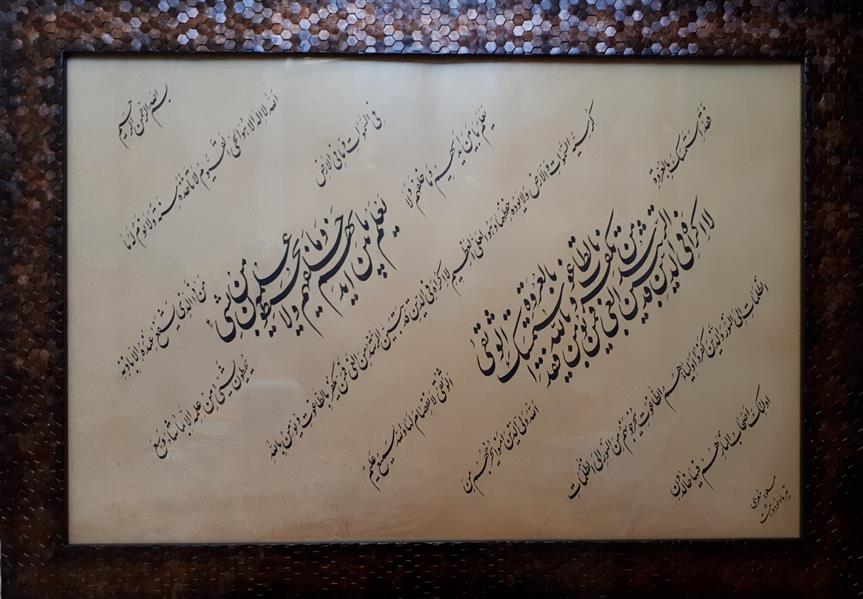 بسم الله الرحمن الرحیم
الله لا اله الا هو الحی القیوم لا تاخذه سنة و لا نوم له ما
فی السموات و ما فی الارض
من ذا الذی یشفع عنده الا باذنه
یعلم ما بین ایدیهم و ما خلفهم و لا
یعلم ما بین ایدیهم و ما خلفهم و لا یحیطون بشیء من علم
یحیطون بشیء من علمه الا بما شاء وسع
کرسیه السموات و الارض و لا یوده حفظهما و هو العلی العظیم
لا اکراه فی الدین قد تبین الرشد من الغی فمن یکفر بالطاغوت و یؤمن بالله
فقد استمسک بالعروة
لا اکراه فی الدین قد تبین الرشد من الغی فمن یکفر بالطاغوت و یؤمن بالله فقد استمسک بالعروة الوثقی
الوثقی لا انفصام لها و الله سمیع علیم
الله ولی الذین آمنوا یخرجهم من
الظلمات الی النور و الذین کفروا اولیائهم الطاغوت یخرجونهم من النور الی الظلمات
اولئک اصحاب النار هم فیها خالدون
مسعود
تیرماه نود و هشت